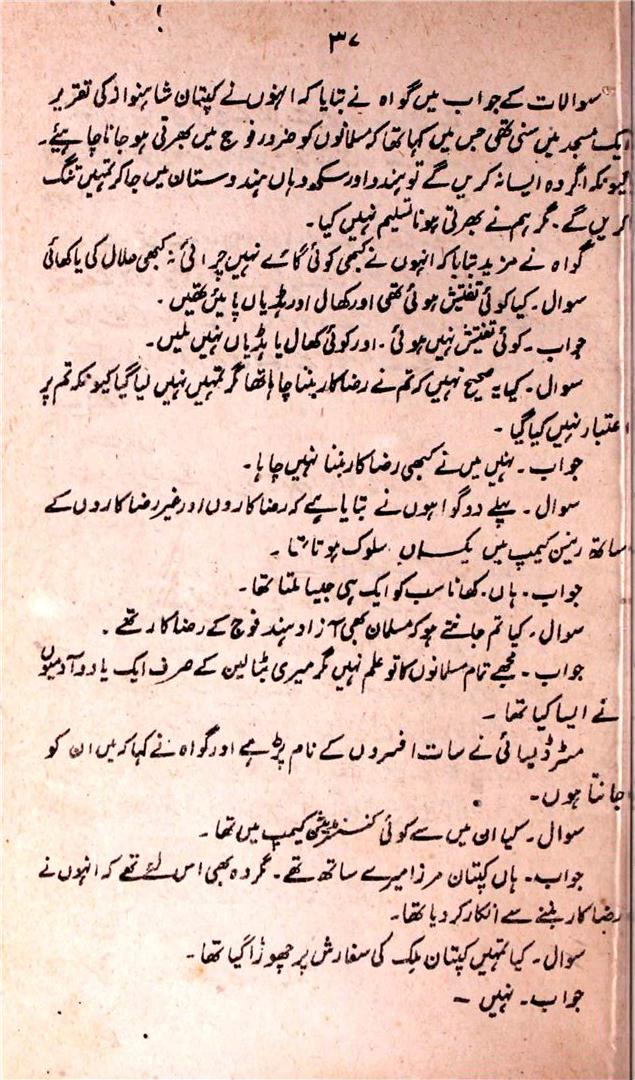 ۳۷
سوالات کے جواب میں گواہ نے بتایا کہ انہوں نے کپتان شاہنواز کی تقریر
ایک مسجد میں سنی تھی جس میں کہا تھا کہ مسلمانوں کو ضرور فوج میں بھرتی ہو جانا چاہیئے۔
کیونکہ اگر وہ ایسا نہ کریں گے تو ہندو اور سکھ وہاں ہندوستان میں جا کر تمہیں تنگ
کریں گے۔ مگر ہم نے بھرتی ہونا تسلیم نہیں کیا۔
گواہ نے مزید بتایا کہ انہوں نے کبھی کوئی گائے نہیں چرائی نہ کبھی حلال کی یا کھائی
سوال۔ کیا کوئی تفتیش ہوئی تھی اور کھال اور ہڈیاں پائی تھیں۔
جواب۔ کوئی تفتیش نہیں ہوئی۔ اور کوئی کھال یا ہڈیاں نہیں ملیں۔
سوال۔ کیا یہ صحیح نہیں کہ تم نے رضاکار بننا چاہا تھا مگر تمہیں نہیں لیا گیا کیونکہ تم پر
اعتبار نہیں کیا گیا۔
جواب۔ نہیں میں نے کبھی رضاکار بننا نہیں چاہا۔
سوال۔ پہلے دو گواہوں نے بتایا ہے کہ رضاکاروں اور غیر رضاکاروں کے
ساتھ رینن کیمپ میں یکساں سلوک ہوتا تھا۔
جواب۔ ہاں۔ کھانا سب کو ایک ہی جیسا ملتا تھا۔
سوال۔ کیا تم جانتے ہو کہ مسلمان بھی آزاد ہند فوج کے رضاکار تھے۔
جواب۔ مجھے تمام مسلمانوں کا تو علم نہیں مگر میری بٹالین کے صرف ایک یا دو آدمیوں
نے ایسا کیا تھا۔
مسٹر ڈیسائی نے سات افسروں کے نام پڑھے اور گواہ نے کہا کہ میں ان کو
جانتا ہوں۔
سوال۔ کیا ان میں سے کوئی کنسنٹریشن کیمپ میں تھا۔
جواب۔ ہاں کپتان مرزا میرے ساتھ تھے۔ مگر وہ بھی اس لئے تھے کہ انہوں نے
رضاکار بننے سے انکار کر دیا تھا۔
سوال۔ کیا تمہیں کپتان ملک کی سفارش پر چھوڑا گیا تھا۔
جواب۔ نہیں —